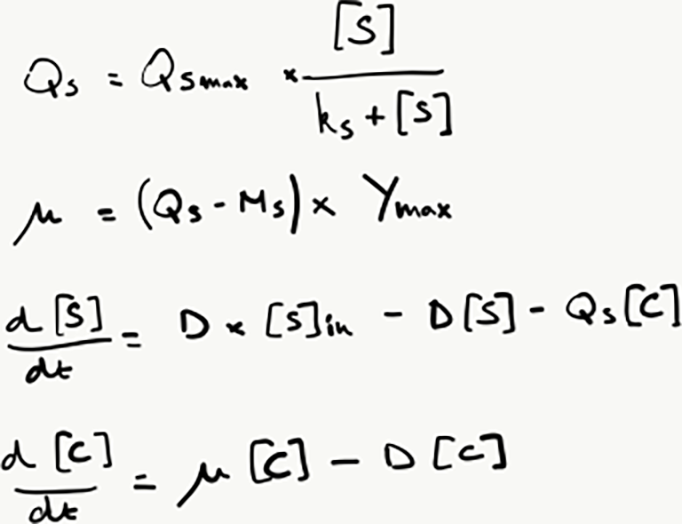 Qs = Qsmax × [S] / (ks + [S])
μ = (Qs - Ms) × Ymax
d[S]/dt = D × [S]in - D[S] - Qs[C]
d[C]/dt = μ[C] - D[C]